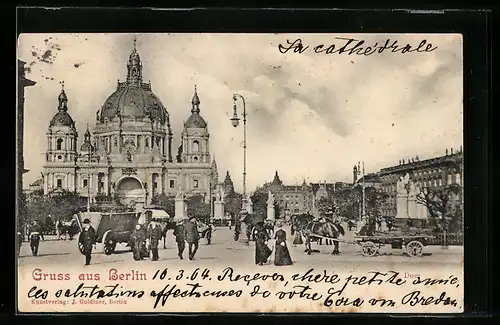 La cathédrale
Dom
Gruss aus Berlin 10.3.04. Recevez, chère petite amie,
les salutations affectueuses de votre Cora von Bredau
Kunstverlag: J. Goldiner, Berlin